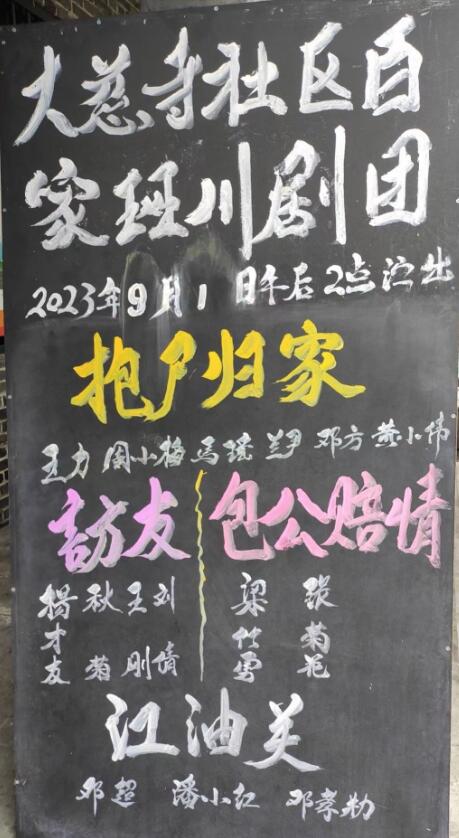 大慈寺社区百
家班川剧团
2023年9月1日午后2点演出
抱尸归家
王力 周小梅 马瑞 兰尹 邓方 黄小伟
访友
包公赔情
杨才友 秋菊 王刚 刘倩
梁竹勇 张菊花
江油关
邓超 潘小红 邓孝勃